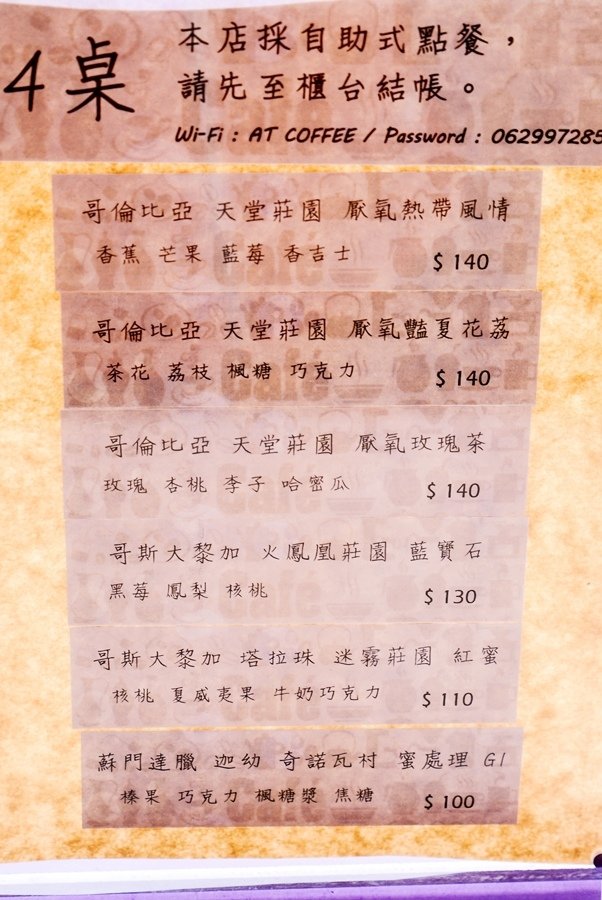 4桌
本店採自助式點餐，
請先至櫃台結帳。
Wi-Fi : AT COFFEE / Password : 062997285
哥倫比亞 天堂莊園 厭氧熱帶風情
香蕉 芒果 藍莓 香吉士 $ 140
哥倫比亞 天堂莊園 厭氧豔夏花荔
茶花 荔枝 楓糖 巧克力 $ 140
哥倫比亞 天堂莊園 厭氧玫瑰茶
玫瑰 杏桃 李子 哈密瓜 $ 140
哥斯大黎加 火鳳凰莊園 藍寶石
黑莓 鳳梨 核桃 $ 130
哥斯大黎加 塔拉珠 迷霧莊園 紅蜜
核桃 夏威夷果 牛奶巧克力 $ 110
蘇門達臘 迦幼 奇諾瓦村 蜜處理 G1
榛果 巧克力 楓糖漿 焦糖 $ 100